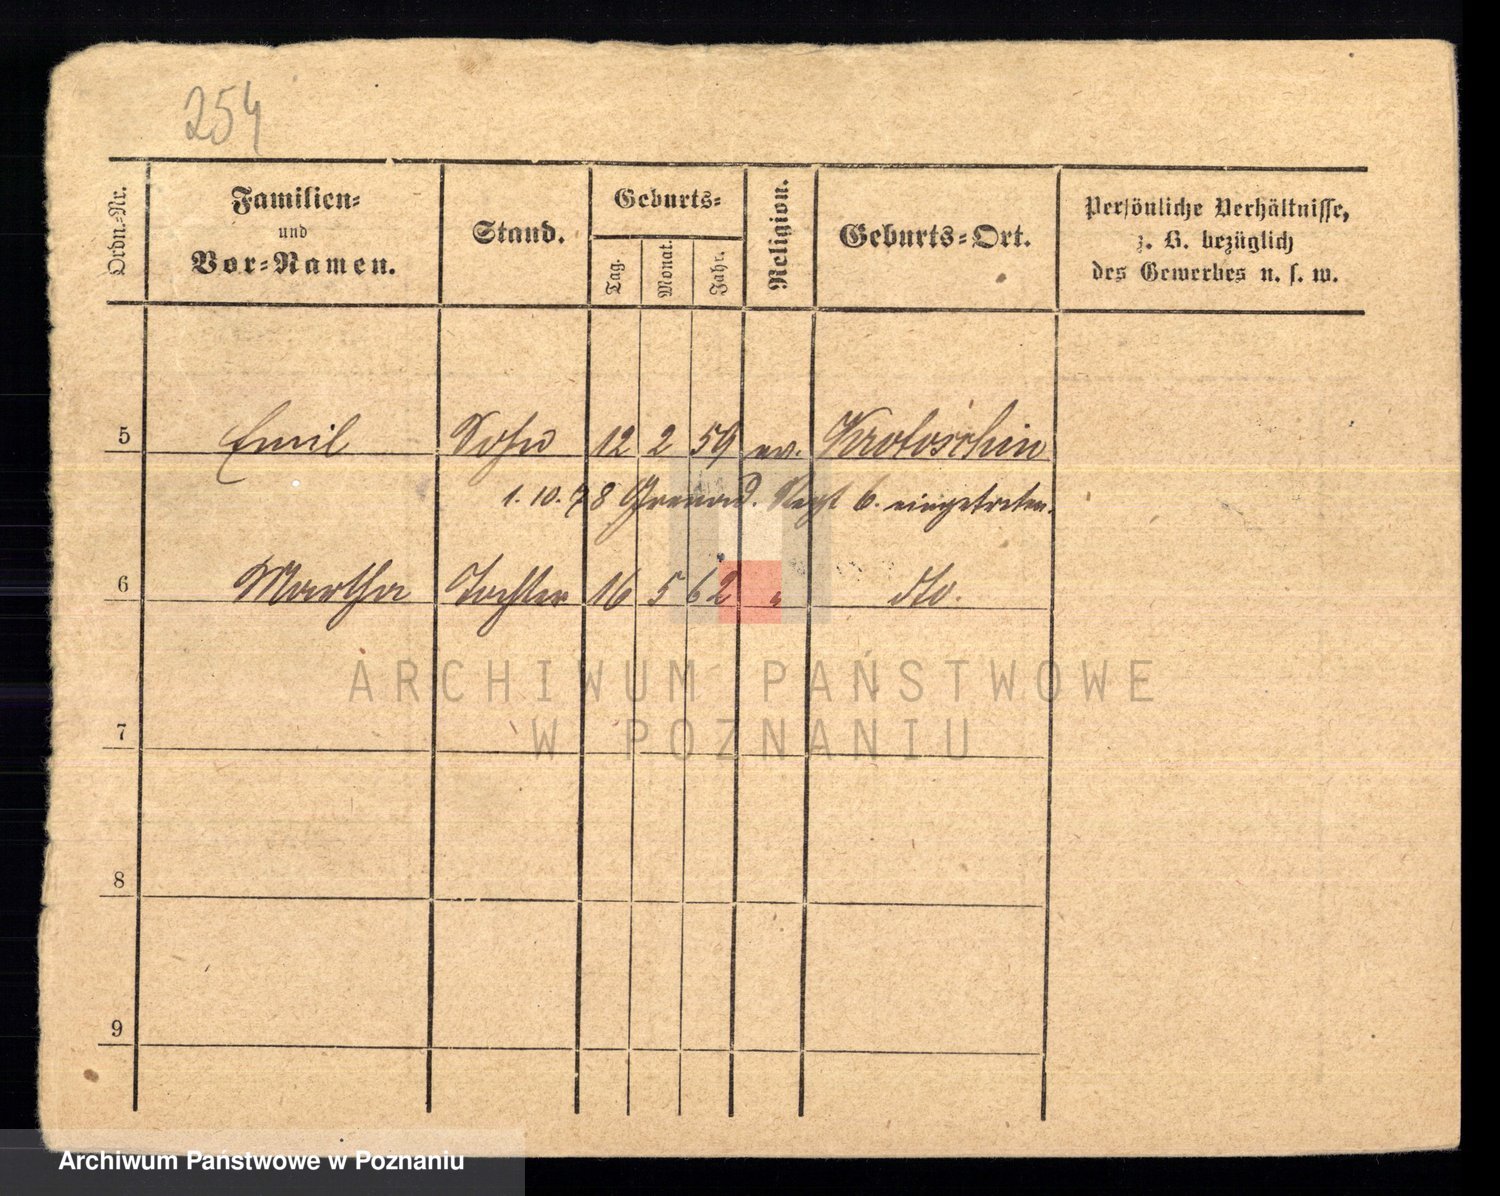 254
Ordn.-Nr.
Familien-
und
Vor-Namen.
Stand.
Geburts-
Tag.
Monat.
Jahr.
Religion.
Geburts-Ort.
Persönliche Verhältnisse,
z. B. bezüglich
des Gewerbes u. s. w.
5 Emil Sohn 12 2 59 ev. Krotoschin
1. 10. 78 Grenad. Regt 6. eingetreten.
6 Martha Tochter 16 5 62 " dto.
ARCHIWUM PAŃSTWOWE
W POZNANIU
7
8
9
Archiwum Państwowe w Poznaniu